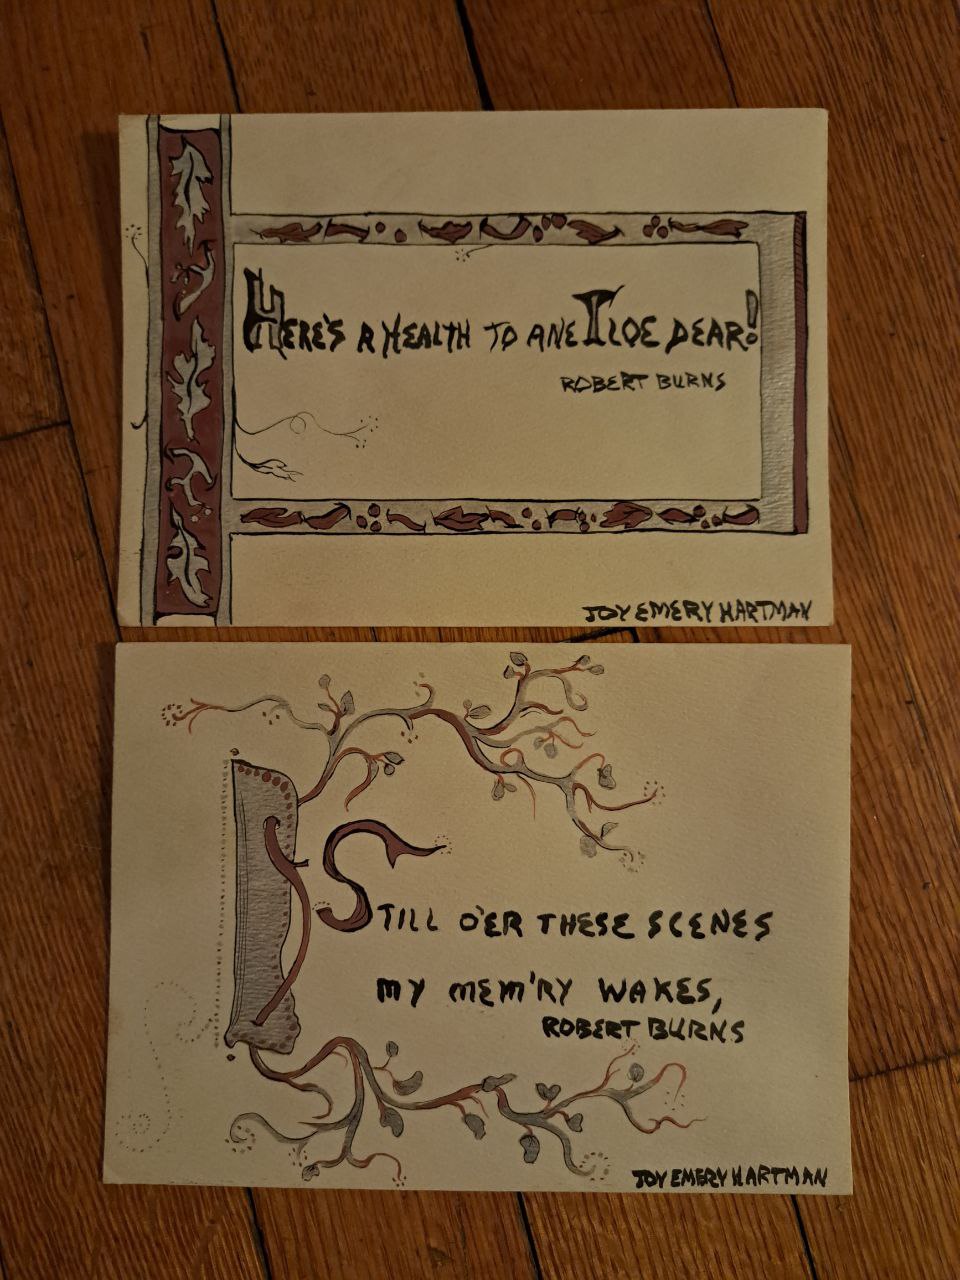 HERE'S A HEALTH TO ANE I LOE DEAR!
ROBERT BURNS
JOY EMERY HARTMAN
STILL O'ER THESE SCENES
MY MEM'RY WAKES,
ROBERT BURNS
JOY EMERY HARTMAN